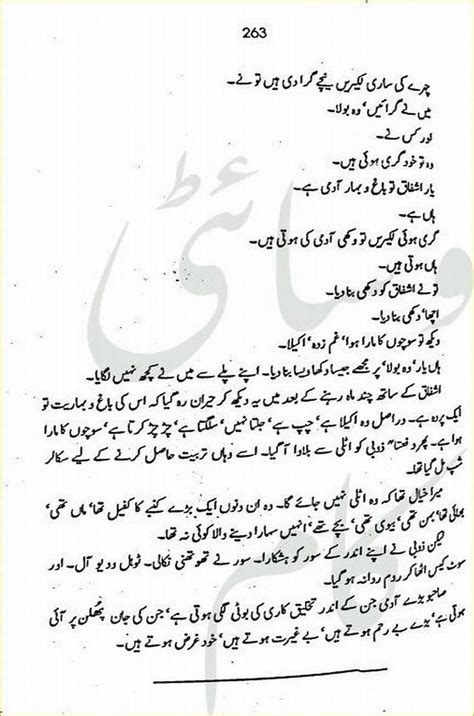 263
چہرے کی ساری لکیریں نیچے گرا دی ہیں تو نے۔
میں نے گرائیں‘ وہ بولا۔
اور کس نے۔
وہ تو خود گری ہوئی ہیں۔
یار اشفاق تو باغ و بہار آدمی ہے۔
ہاں ہے۔
گری ہوئی لکیریں تو دکھی آدمی کی ہوتی ہیں۔
ہاں ہوتی ہیں۔
تو نے اشفاق کو دکھی بنا دیا۔
اچھا‘ دکھی بنا دیا۔
دیکھ تو سوچوں کا مارا ہوا‘ غم زدہ‘ اکیلا۔
ہاں یار‘ وہ بولا‘ پر مجھے جیسا دکھا ویسا بنا دیا۔ اپنے پلے سے میں نے کچھ نہیں لگایا۔
اشفاق کے ساتھ چند ماہ رہنے کے بعد میں یہ دیکھ کر حیران رہ گیا کہ اس کی باغ و بہاریت تو
ایک پردہ ہے۔ دراصل وہ اکیلا ہے‘ چپ ہے‘ جلتا نہیں‘ سلگتا ہے‘ چڑ چڑ کرتا ہے‘ سوچوں کا مارا
ہوا ہے۔ پھر دفعتا" ذوبی کو اٹلی سے بلاوا آ گیا۔ اسے وہاں تربیت حاصل کرنے کے لیے سکالر
شپ مل گیا تھا۔
میرا خیال تھا کہ وہ اٹلی نہیں جائے گا۔ وہ ان دنوں ایک بڑے کنبے کا کفیل تھا‘ ماں تھی‘
بھائی تھا‘ بہن تھی‘ بیوی تھی‘ بچے تھے‘ انہیں سہارا دینے والا کوئی نہ تھا۔
لیکن ذوبی نے اپنے اندر کے سور کو ہشکارا۔ سور نے تھوتھنی نکالی۔ ٹوبل ود یو آل۔ اور
سوٹ کیس اٹھا کر روم روانہ ہو گیا۔
صاحبو بڑے آدمی جن کے اندر تخلیق کاری کی بوٹی لگی ہوتی ہے‘ جن کی جان پھلن پر آئی
ہوتی ہے‘ بڑے بے رحم ہوتے ہیں‘ بے غیرت ہوتے ہیں‘ خود غرض ہوتے ہیں۔